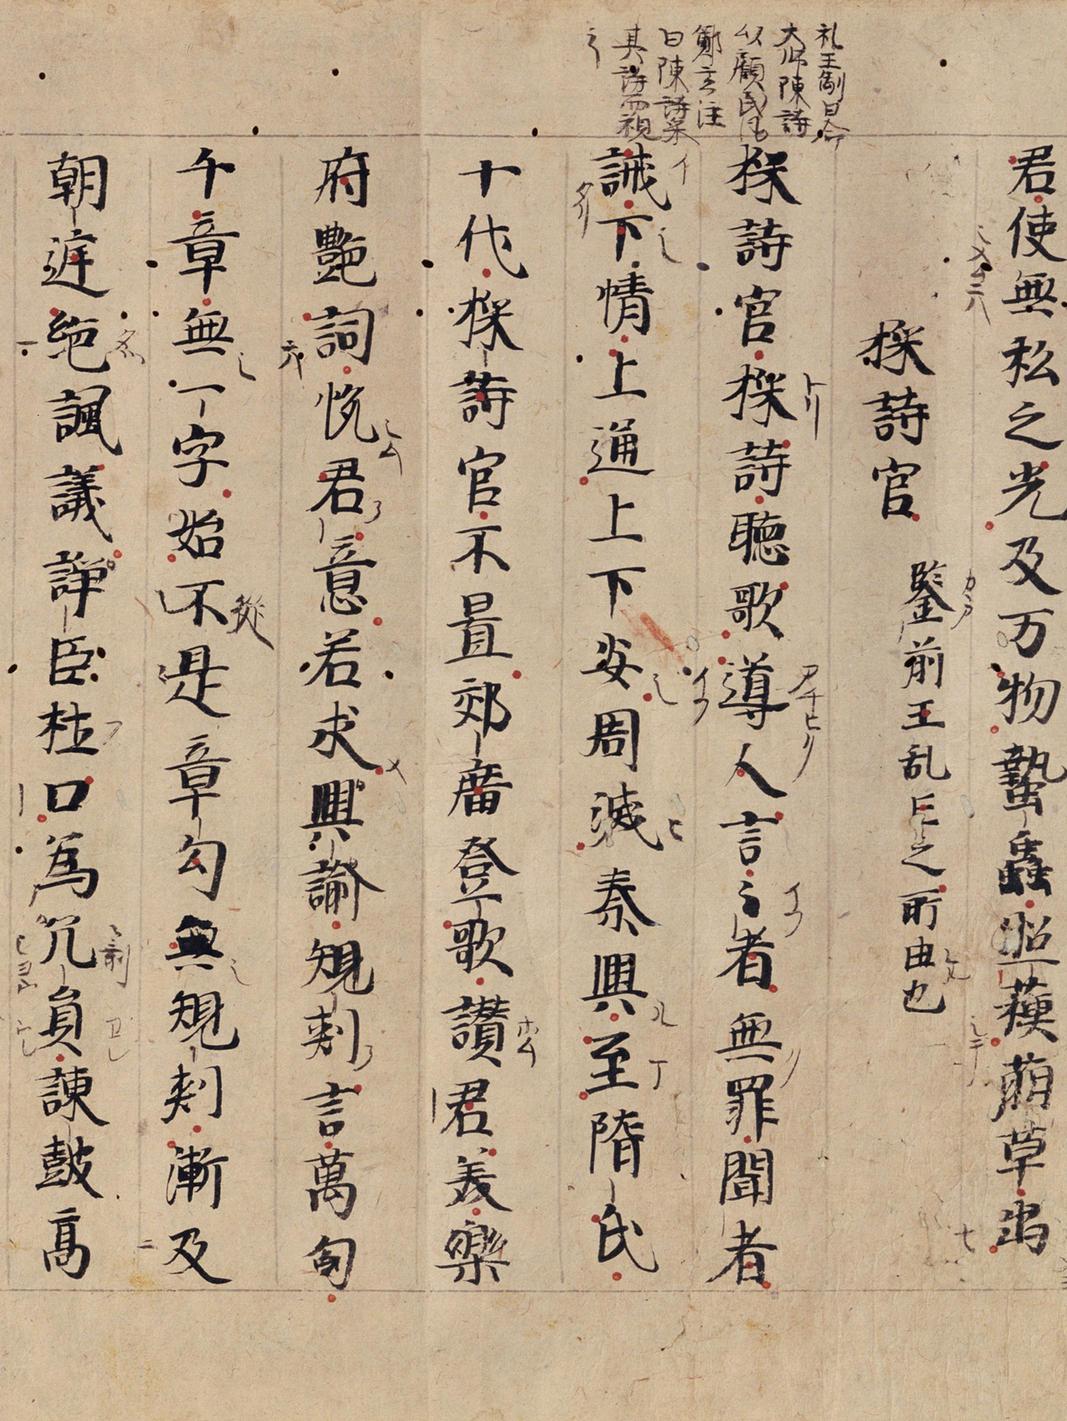 礼王制曰命
大師陳詩
以觀民風
鄭玄注
曰陳詩采
其詩而視
之
君使無私之光及万物蟄蟲照蘇萌草出
採詩官
鑒前王乱亡之所由也
採詩官採詩聽歌導人言々者無罪聞者
誡下情上通上下安周滅秦興至隋氏
十代採詩官不置郊廟登歌讃君美樂
府艶詞悦君意若求興諭規刾言萬句
千章無一字始不是章句無規刾漸及
朝廷絶諷議諍臣杜口為冗員諫鼓高